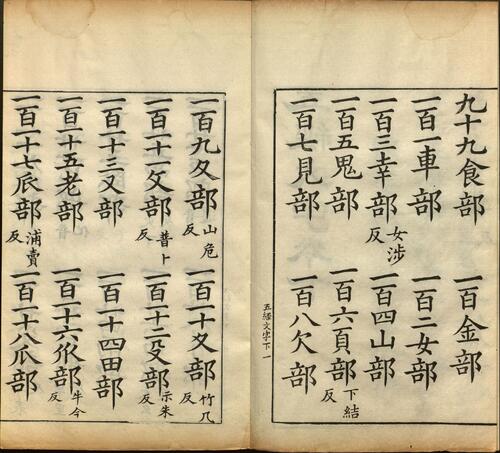 九十九食部 一百金部
一百一車部 一百二女部
一百三幸部女涉反 一百四山部
一百五鬼部 一百六頁部下結反
一百七見部 一百八欠部
五經文字下 一
一百九夊部山危反 一百一十夂部竹几反
一百一十一攵部普卜反 一百一十二殳部示朱反
一百一十三又部 一百一十四田部
一百一十五老部 一百一十六㐺部牛今反
一百一十七𠂢部浦賣反 一百一十八瓜部